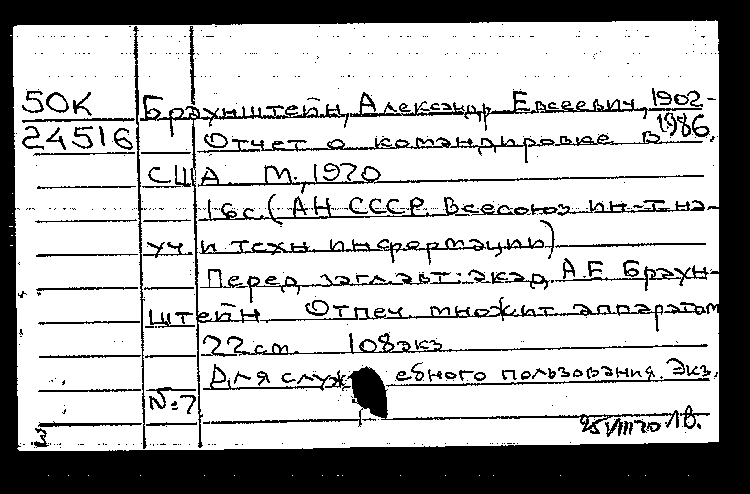 50К Браунштейн, Александр Евсеевич, 1902-
24516 Отчет о командировке в 1986.
США. М., 1970
16с. (АН СССР. Всесоюз. ин-т на-
уч. и техн. информации)
Перед загл. авт.: акад. А.Е. Браун-
штейн. Отпеч. множит. аппаратом
22 см. 108 экз.
Для служебного пользования. Экз.
№7
25/VIII 70 1в.